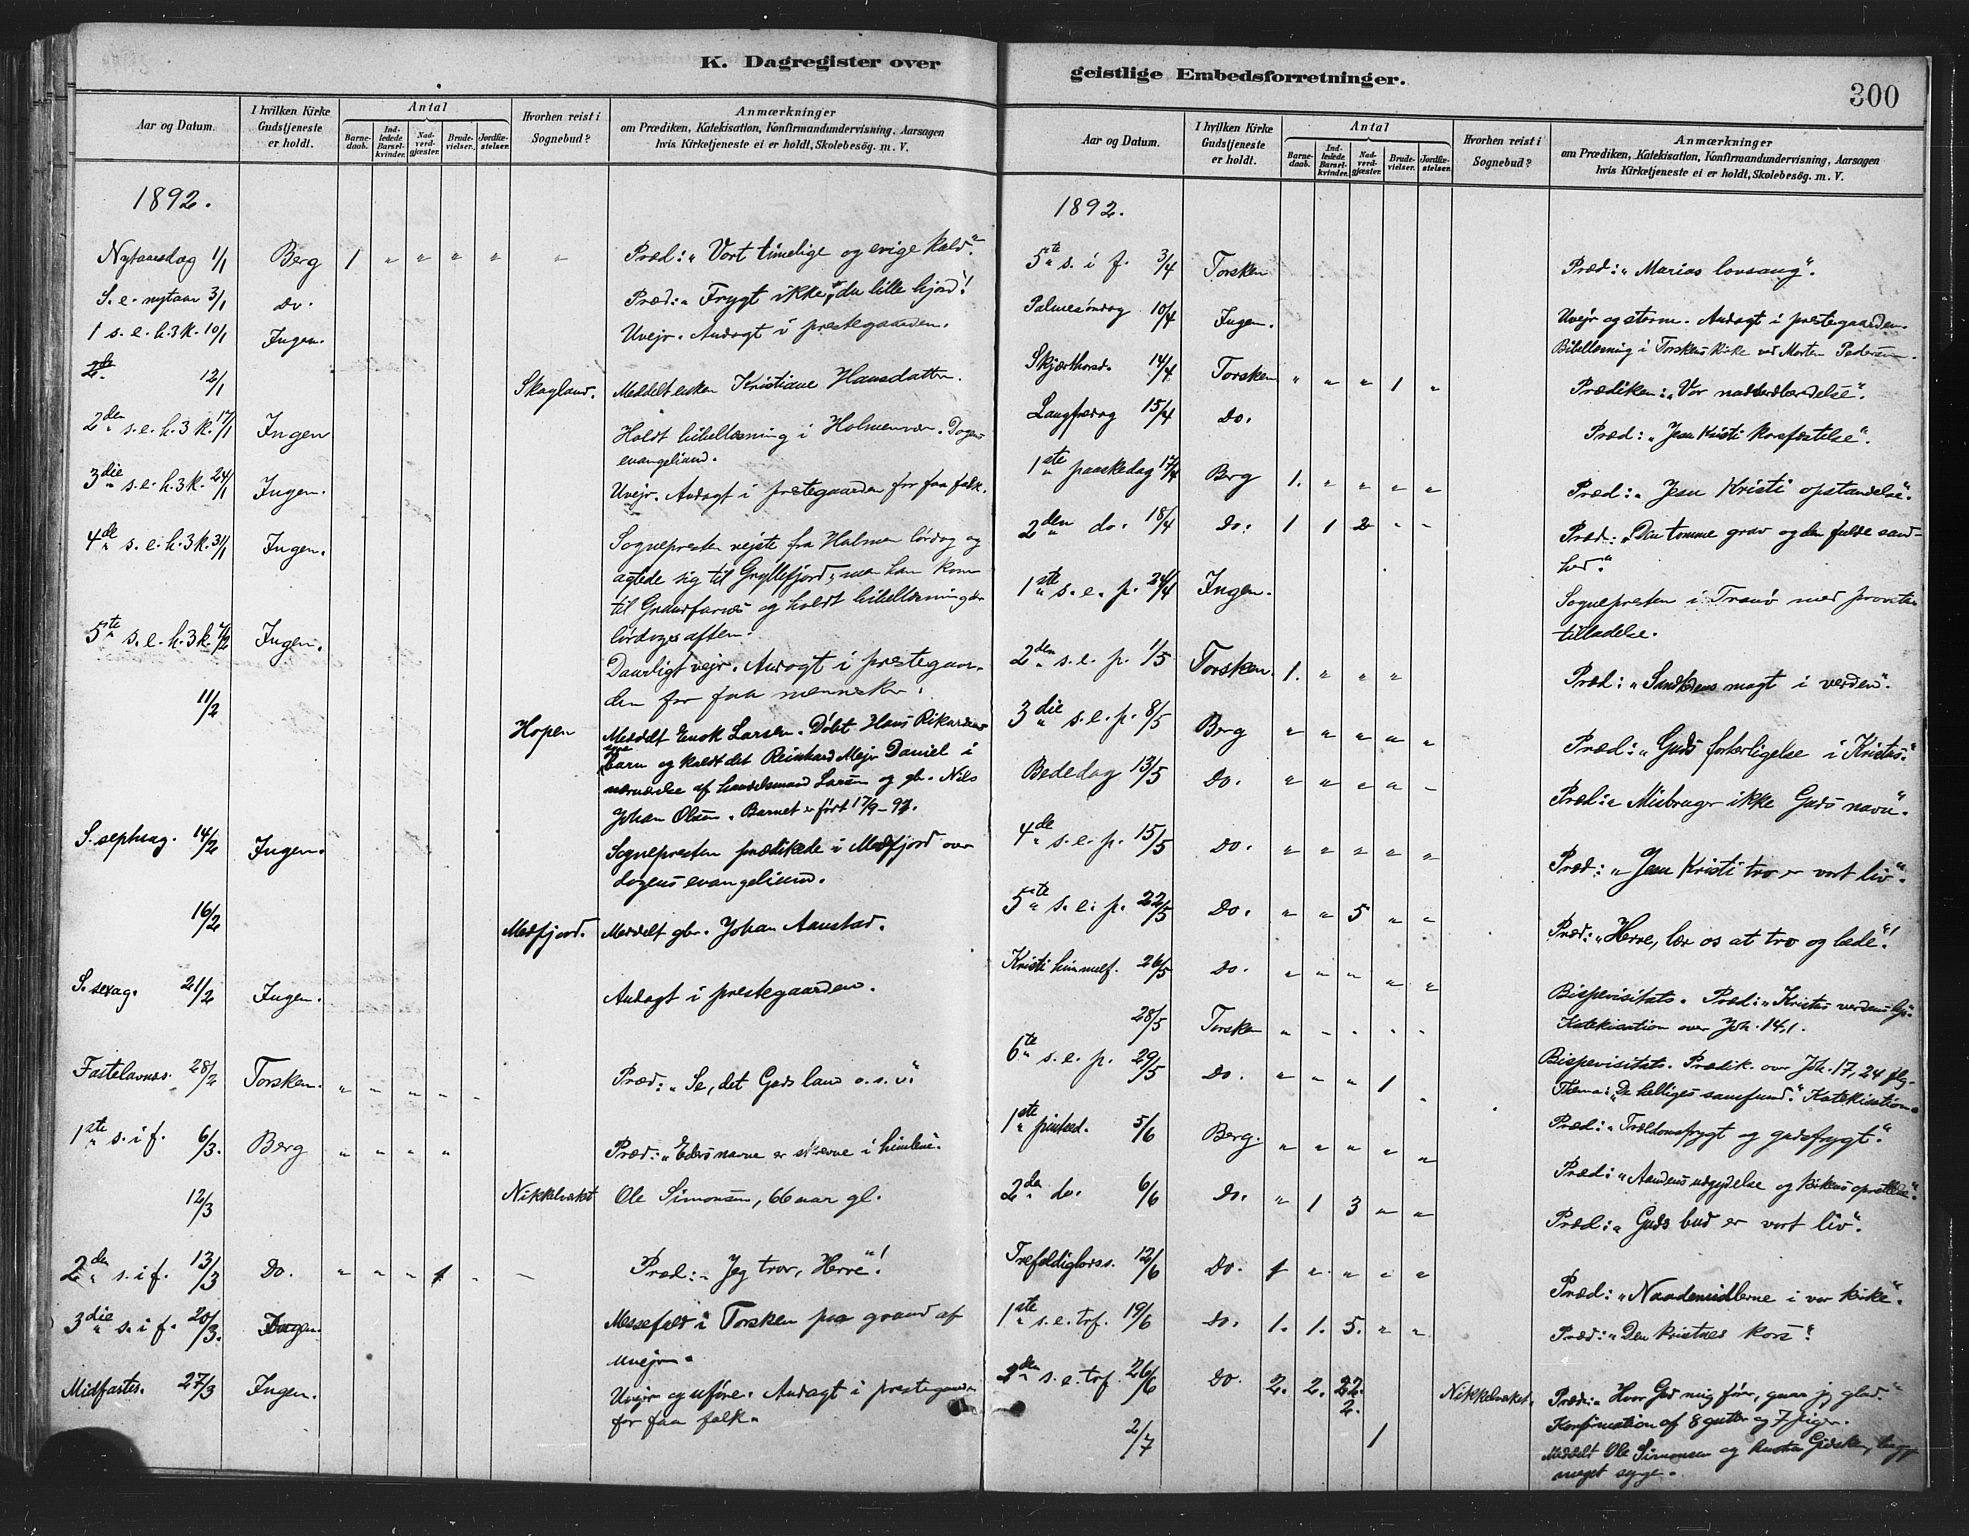 K. Dagregister over
Aar og Datum.
I hvilken Kirke Gudstjeneste er holdt.
Antal
Barnedaab.
Indledede Barselkvinder.
Nadverdgjæster.
Brudevielser.
Jordfæstelser.
Hvorhen reist i Sognebud?
Anmærkninger
om Prædiken, Katekisation, Konfirmandundervisning, Aarsagen
hvis Kirketjeneste ei er holdt, Skolebesøg. m. V.
1892.
Nytaarsdag 1/1 Berg 1 " " " " " Præd: "Vort timelige og evige kald."
S. e. nytaar 3/1 Do. Præd: "Frygt ikke, du lille hjord"!
1 s. e. h. 3 k. 10/1 Ingen. Uvejr. Andagt i prestegaarden.
12/1 Skagland. Meddelt Kristiane Hansdatter.
2den s. e. h. 3 k. 17/1 Ingen Holdt bibellæsning i Holmenvær. Dagens
evangelium.
3die s. e. h. 3 k. 24/1 Ingen. Uvejr. Andagt i prestegaarden for faa folk.
4de s. e. h. 3 k. 31/1 Ingen. Sognepresten rejste fra Holmen lørdag og
agtede sig til Gryllefjord, men han kom
til Grundfarnes og holdt bibellæsning der
lørdags aften.
5te s. e. h. 3 k. 7/2 Ingen. Daarligt vejr. Andagt i prestegaar-
den for faa mennesker.
11/2 Hopen Meddelt Enok Larsen. Døbt Hans Rikardsens
barn og kaldt det Reinhard Mejer Daniel i
nærværelse af handelsmand Larsen og gbr. Nils
Johan Olsen. Barnet er født 17/9-91.
S. septuag. 14/2 Ingen. Sognepresten prædikede i Medfjord over
dagens evangelium.
16/2 Medfjord. Meddelt gbr. Johan Aanstad.
S. sexag. 21/2 Ingen. Andagt i prestegaarden.
Fastelavnss. 28/2 Torsken. " " " " " Præd: "Se, det Guds lam o. s. v."
1ste s. i f. 6/3 Berg " " " " Præd: "Eders navne er skrevne i himlene".
12/3 Nikkelværket Ole Simonsen, 66 aar gl.
2den s. i f. 13/3 Do. " " " 1 " " Præd: "Jeg tror, Herre"!
3die s. i f. 20/3. Ingen. Messefald i Torsken paa grund af
uvejr.
Midfastes. 27/3 Ingen. Uvejr og uføre. Andagt i prestegaarden
for faa folk.
geistlige Embedsforretninger.
300
Aar og Datum.
I hvilken Kirke Gudstjeneste er holdt.
Antal
Barnedaab.
Indledede Barselkvinder.
Nadverdgjæster.
Brudevielser.
Jordfæstelser.
Hvorhen reist i Sognebud?
Anmærkninger
om Prædiken, Katekisation, Konfirmandundervisning, Aarsagen
hvis Kirketjeneste ei er holdt, Skolebesøg. m. V.
1892.
5te s. i f. 3/4 Torsken Præd: "Marias lovsang".
Palmesøndag 10/4 Ingen. Uvejr og storm. Andagt i prestegaarden.
Bibellæsning i Torskens kirke ved Morten Pedersen.
Skjærthorsd. 14/4 Torsken " " " 1 " Prædiken: "Vor nadverdlærdelse".
Langfredag 15/4 Do. Præd: "Jesu Kristi korsfæstelse".
1ste paaskedag 17/4 Berg 1. " " " " Præd: "Jesu Kristi opstandelse".
2den do. 18/4 Do. 1 1 2 " " Præd: "Den tomme grav og den fulde sand-
hed".
1ste s. e. p. 24/4 Ingen. Sognepresten i Tranø med provstens
tilladelse.
2den s. e. p. 1/5 Torsken. 1. " " " Præd: "Sandhedens magt i verden".
3die s. e. p. 8/5 Berg " " " " " Præd: "Guds forherligelse i Kristus".
Bededag 13/5 Do. " " " " " Præd: "Misbruger ikke Guds navn".
4de s. e. p. 15/5 Do. " " " " " Præd: "Jesu Kristi tro er vort liv".
5te s. e. p. 22/5 Do. " " 5 " " Præd: "Herre, lær os at tro og bede"!
Kristi himmelf. 26/5 Do. " " " " " Bispevisitats. Præd: "Kristus verdens lys"
28/5 Torsken " " " " " Katekisation over Joh. 14,1.
6te s. e. p. 29/5 Do. " " " 1 " Bispevisitats. Prædik. over Joh. 17, 24 flg.
Thema: "De helliges samfund". Katekisation.
1ste pinsed. 5/6 Berg. " " " " " Præd: "Trældomsfrygt og gudsfrygt".
2den do. 6/6 Do. " 1 3 " " Præd: "Aandens udgydelse og kirkens oprettelse".
Præd: "Guds bud er vort liv".
Trefoldigheds. 12/6 Do. 1 " " " " Præd: "Naademidlerne i vor kirke".
1ste s. e. trf. 19/6 Do. 1. 1. 5. " " Præd: "Den kristnes kors".
2den s. e. trf. 26/6 Do. 2. 2. 22. 2. Præd: "Hvor Gud mig fører, gaar jeg glad."
Konfirmation af 8 gutter og 7 piger.
2/7 1 Nikkelværket. Meddelt Ole Simonsen og
meget syge.